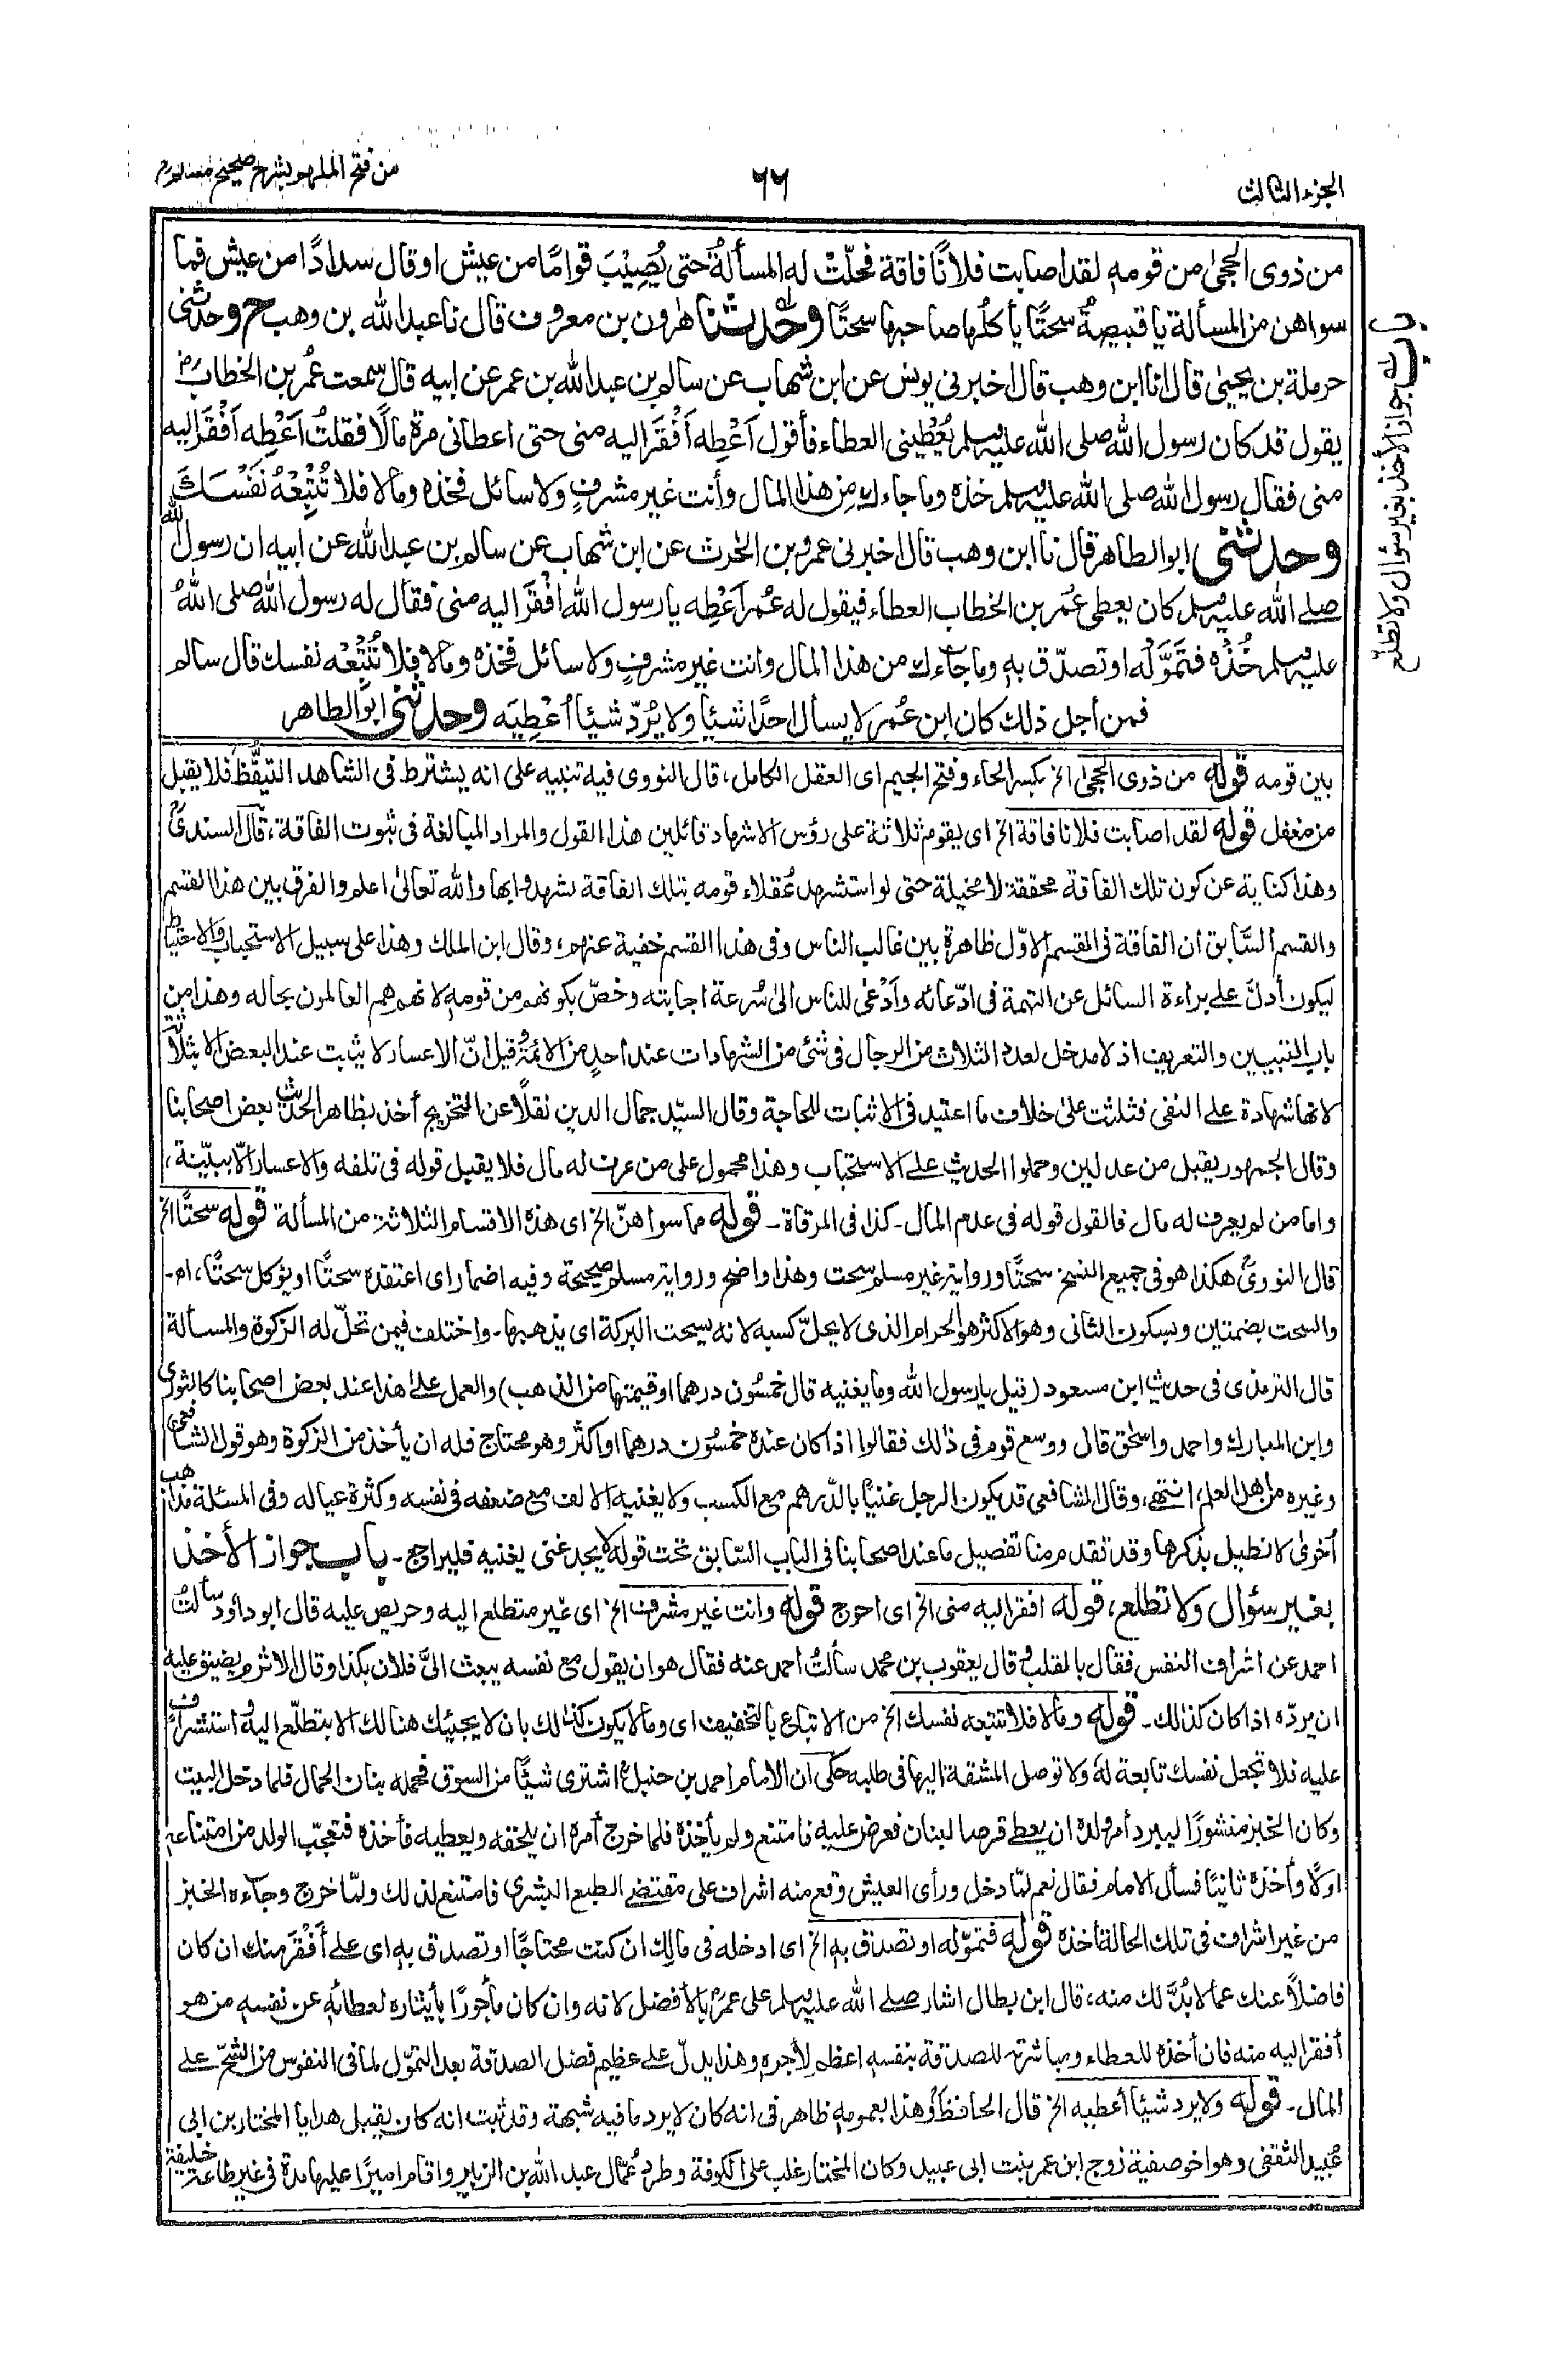 الجزء الثالث
٦٦
من فتح الملهم بشرح صحيح مسلم
باب جواز الأخذ بغير سؤال ولا تطلع
من ذوى الحجىٰ من قومه لقد اصابت فلانًا فاقة فحلّتْ له المسألةُ حتى يُصِيْبَ قوامًا من عيش او قال سدادًا من عيش فما
سواهن من المسألة يا قبيصةُ سحتًا يأكلُها صاحبها سحتًا وحدثنا هٰرون بن معروف قال نا عبد الله بن وهب ح وحدثنى
حرملة بن يحيىٰ قال انا ابن وهب قال اخبرنى يونس عن ابن شهاب عن سالم بن عبد الله بن عمر عن ابيه قال سمعت عُمر بن الخطابؓ
يقول قد كان رسول الله صلى الله عليه وسلم يُعْطِينى العطاء فأقول اَعْطِه اَفْقَرَ اليه منى حتى اعطانى مرة مالًا فقلتُ اَعْطِه اَفْقَرَ اليه
منى فقال رسول الله صلى الله عليه وسلم خذه وما جاءك من هذا المال وأنت غير مشرفٍ ولا سائل فخذه وما لا فلا تُتْبِعْهُ نَفْسَكَ
وحدثنى ابو الطاهر قال نا ابن وهب قال اخبرنى عمرو بن الحٰرث عن ابن شهاب عن سالم بن عبد الله عن ابيه ان رسول الله
صلى الله عليه وسلم كان يعطى عُمر بن الخطاب العطاء فيقول له عُمر اَعْطِه يا رسول الله اَفْقَرَ اليه منى فقال له رسول الله صلى اللهُ
عليه وسلم خُذْه فتَمَوَّلْه او تصدّق به وما جآءك من هذا المال وانت غير مشرفٍ ولا سائل فخذه وما لا فلا تُتْبِعْه نفسك قال سالم
فمن أجل ذلك كان ابن عُمر لا يسأل احدًا شيئاً ولا يرُدّ شيئا اُعْطِيَه وحدثنى ابو الطاهر
بين قومه قوله من ذوى الحجىٰ الخ بكسر الحاء وفتح الجيم اى العقل الكامل، قال النووى فيه تنبيه على انه يشترط فى الشاهد التيقُّظ فلا يقبل
من مغفل قوله لقد اصابت فلانا فاقة الخ اى يقوم ثلاثة على رؤس الاشهاد قائلين هذا القول والمراد المبالغة فى ثبوت الفاقة، قال السندىؒ
وهذا كناية عن كون تلك الفاقة محققة لا مخيلة حتى لو استشهد عُقلاء قومه بتلك الفاقة لشهدوا بها والله تعالىٰ اعلم والفرق بين هذا القسم
والقسم السّابق ان الفاقة فى القسم الاوّل ظاهرة بين غالب الناس وفى هذا القسم خفية عنهم، وقال ابن الملك وهذا على سبيل الاستحباب والاحتياط
ليكون أدلّ على براءة السائل عن التهمة فى ادّعائه وأدْعٰى للناس الىٰ سُرعة اجابته وخصّ بكونهم من قومه لانهم هم العالمون بحاله وهذا من
باب التبيين والتعريف اذ لا مدخل لعدد الثلاث من الرجال فى شئ من الشهادات عند احدٍ من الائمة وقيل انّ الاعسار لا يثبت عند البعض الا بثلاثة
لانها شهادة على النفى فثلثت علىٰ خلاف ما اعتيد فى الاثبات للحاجة وقال السيّد جمال الدين نقلًا عن التخريج أخذ بظاهر الحديث بعض اصحابنا
وقال الجمهور يقبل من عدلين وحملوا الحديث على الاستحباب وهذا محمول على من عرف له مال فلا يقبل قوله فى تلفه والاعسار الّا ببيّنة،
واما من لم يعرف له مال فالقول قوله فى عدم المال - كذا فى المرقاة - قوله مما سواهنّ الخ اى هذه الاقسام الثلاثة من المسألة قوله سحتًا الخ
قال النووىؒ هكذا هو فى جميع النسخ سحتًا ورواية غير مسلم سحت وهذا واضح ورواية مسلم صحيحة وفيه اضمار اى اعتقده سحتًا او يؤكل سحتًا، اه -
والسحت بضمتين وبسكون الثانى وهو الاكثر هو الحرام الذى لا يحلّ كسبه لانه يسحت البركة اى يذهبها - واختلف فيمن تحلّ له الزكوة والمسألة
قال الترمذى فى حديث ابن مسعود (قيل يا رسول الله وما يغنيه قال خمسُون درهما او قيمتها من الذهب) والعمل على هذا عند بعض اصحابنا كالثورى
وابن المبارك واحمد واسحٰق قال ووسع قوم فى ذٰلك فقالوا اذا كان عنده خمسُون درهما او اكثر وهو محتاج فله ان يأخذ من الزكوة وهو قول الشافعى
وغيره من اهل العلم، انتهٰى، وقال الشافعى قد يكون الرجل غنيّا بالدّرهم مع الكسب ولا يغنيه الالف مع ضعفه فى نفسه وكثرة عياله وفى المسئلة مذاهب
اُخرىٰ لا نطيل بذكرها وقد تقدم منا تفصيل ما عند اصحابنا فى الباب السّابق تحت قوله لا يجد غنى يغنيه فليراجع - باب جواز الأخذ
بغير سؤال ولا تطلع، قوله افقر اليه منى الخ اى احوج قوله وانت غير مشرف الخ اى غير متطلع اليه وحريص عليه قال ابو داؤد سألتُ
احمد عن اشراف النفس فقال بالقلب وقال يعقوب بن محمد سألتُ احمد عنه فقال هو ان يقول مع نفسه يبعث الىَّ فلان بكذا وقال الاثرم يضيق عليه
ان يردّه اذا كان كذلك - قوله وما لا فلا تتبعه نفسك الخ من الاتباع بالتخفيف اى وما لا يكون كذلك بان لا يجيئك هنالك الا بتطلّع اليه واستشراف
عليه فلا تجعل نفسك تابعة له ولا توصل المشقة اليها فى طلبه حكى ان الامام احمد بن حنبلؒ اشترى شيئًا من السوق فحمله بنان الحمال فلما دخل البيت
وكان الخبز منشورًا ليبرد أمر ولده ان يعطى قرصا لبنان فعرض عليه فامتنع ولم يأخذه فلما خرج أمره ان يلحقه ويعطيه فأخذه فتعجّب الولد من امتناعه
اولًا وأخذه ثانيًا فسأل الامام فقال نعم لمّا دخل ورأى العيش وقع منه اشراف على مقتضى الطبع البشرى فامتنع لذلك ولمّا خرج وجآءه الخبز
من غير اشراف فى تلك الحالة أخذه قوله فتموّله او تصدّق به الخ اى ادخله فى مالك ان كنت محتاجًا او تصدق به اى على أَفْقَرَ منك ان كان
فاضلًا عنك عما لا بُدّ لك منه، قال ابن بطال اشار صلى الله عليه وسلم على عمرؓ بالأفضل لانه وان كان مأجورًا بأيثاره لعطائه عن نفسه من هو
أفقر اليه منه فان أخذه للعطاء ومباشرته للصدقة بنفسه اعظم لأجره وهذا يدلّ على عظيم فضل الصدقة بعد التموّل لما فى النفوس من الشحّ على
المال - قوله ولا يرد شيئًا أعطيه الخ قال الحافظؒ وهذا بعمومه ظاهر فى انه كان لا يرد ما فيه شبهة وقد ثبت انه كان يقبل هدايا المختار بن ابى
عُبيد الثقفى وهو اخو صفية زوج ابن عمر بنت ابى عبيد وكان المختار غلب على الكوفة وطرد عُمّال عبد الله بن الزبير واقام اميرًا عليها مدة فى غير طاعة خليفة